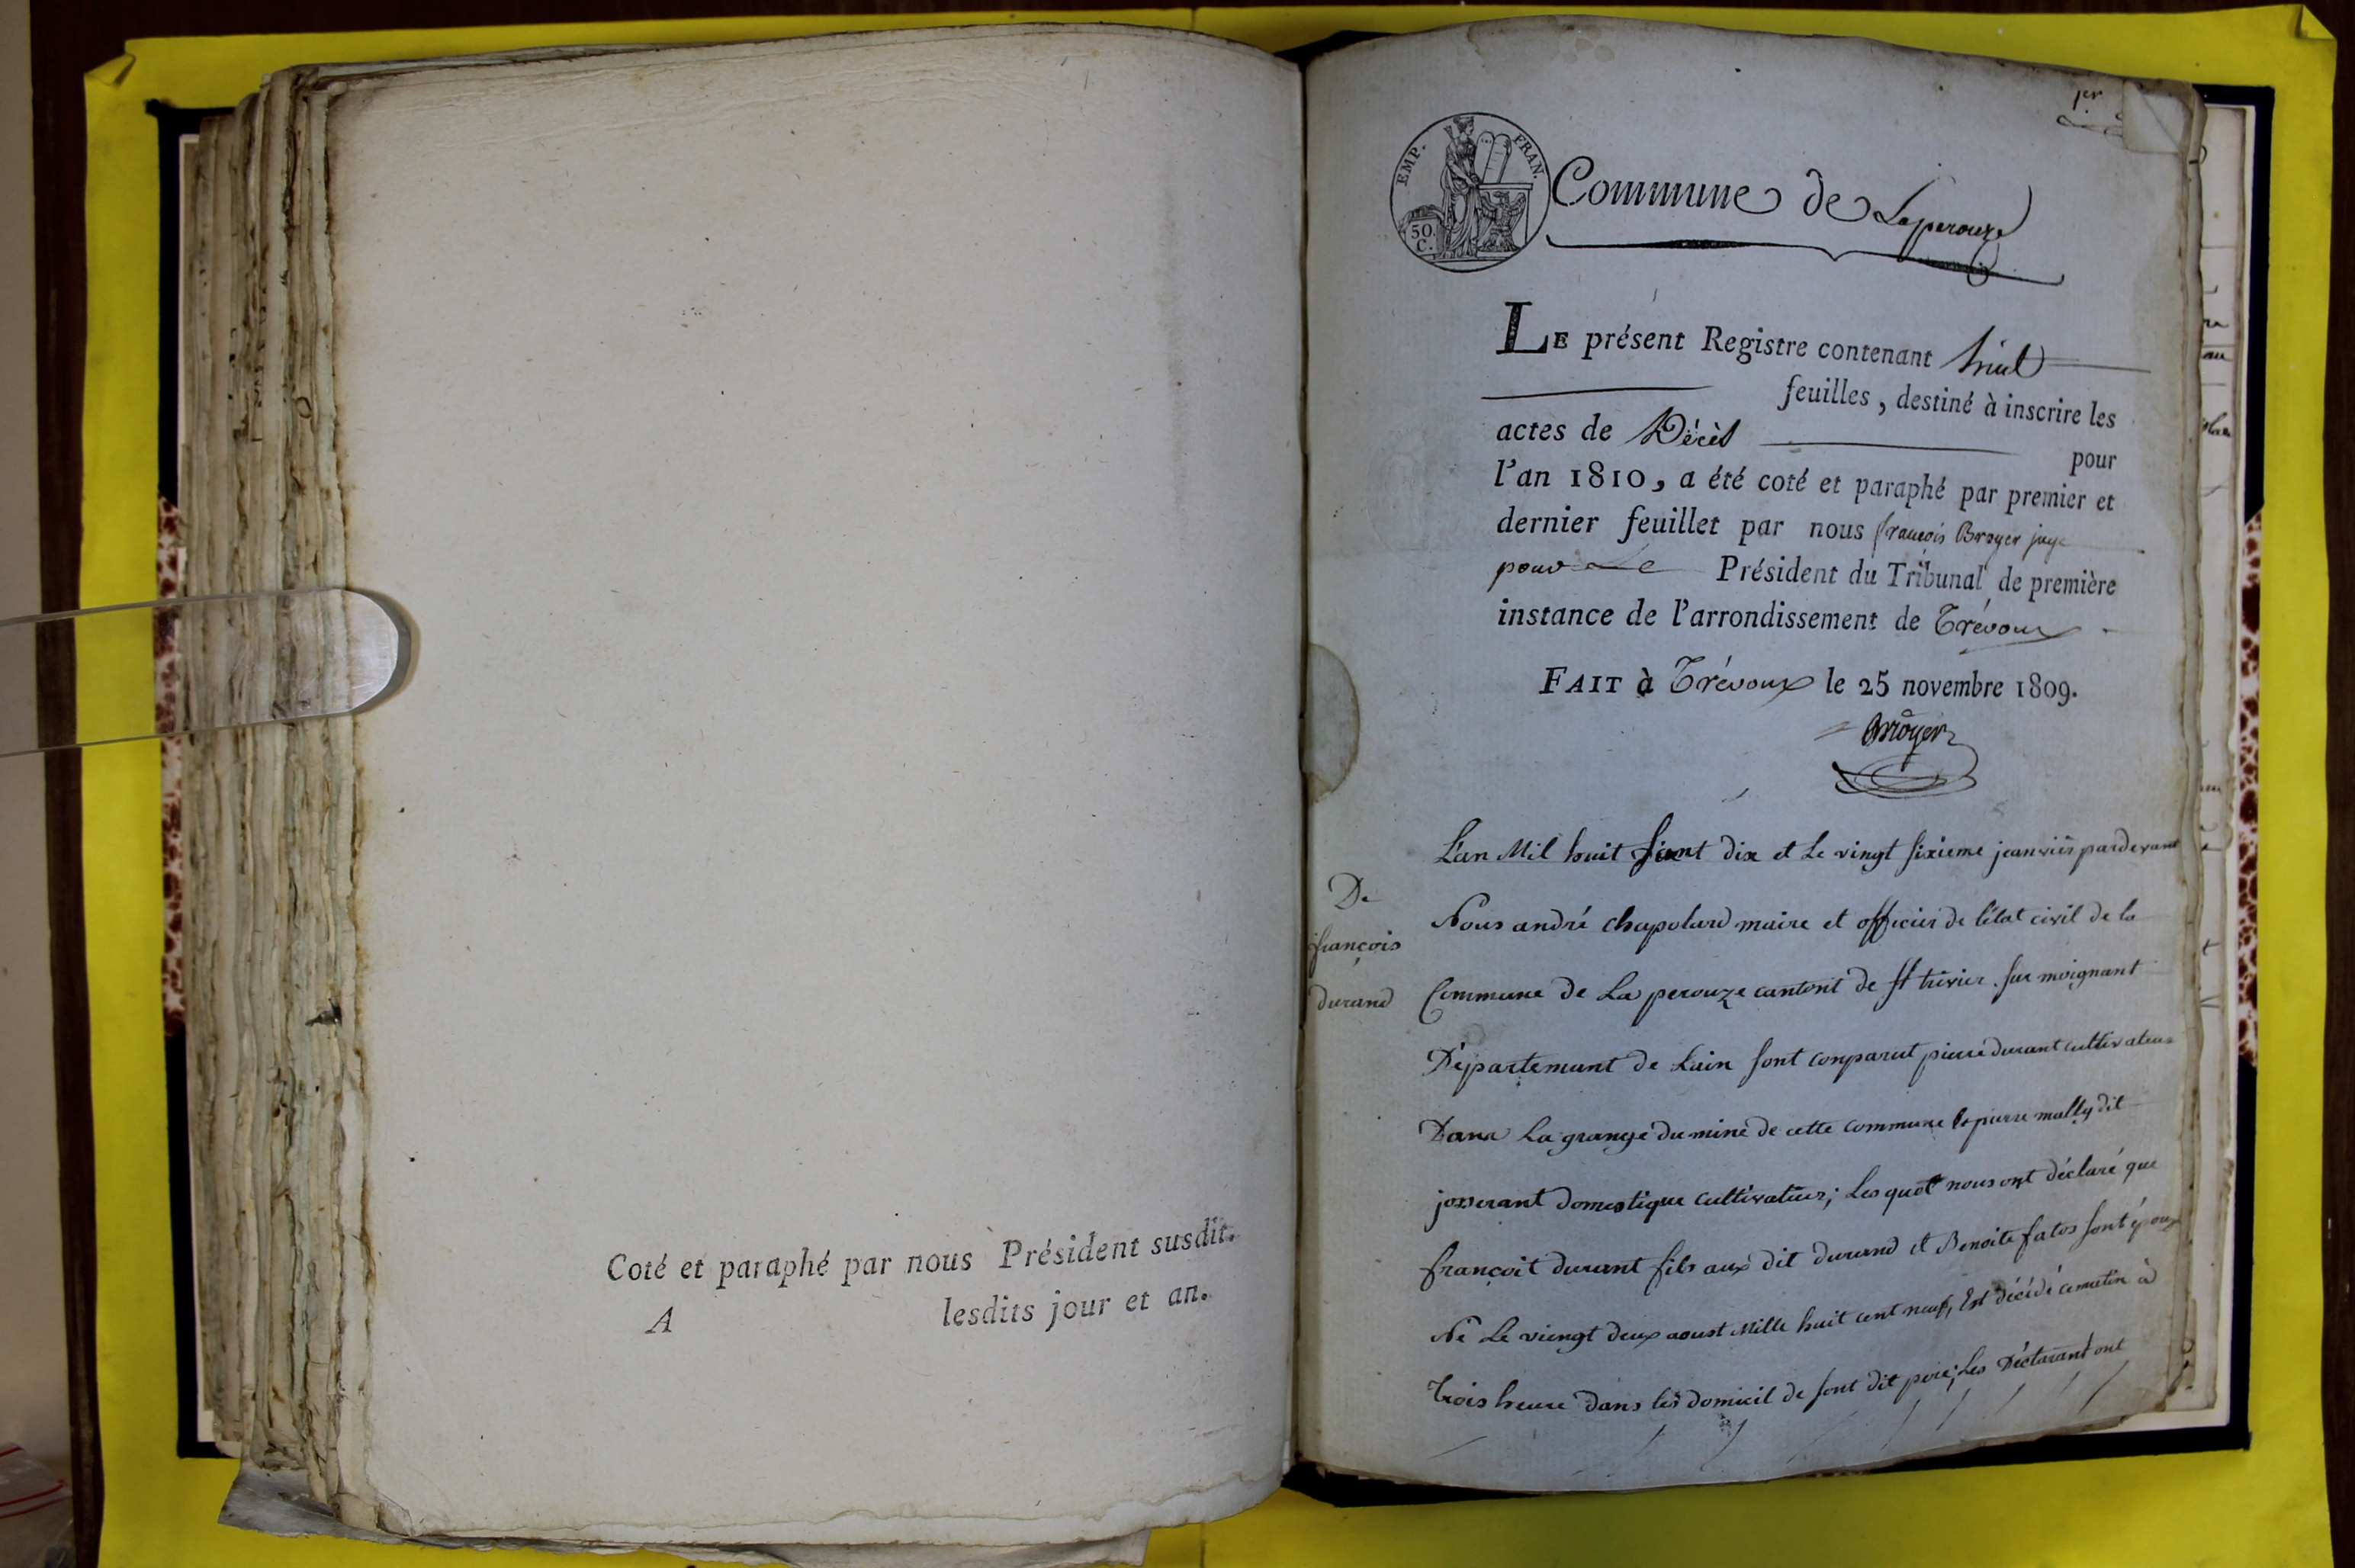 Coté et paraphé par nous Président susdit.
A lesdits jour et an.
1er
EMP. FRAN.
50.
C.
Commune de Laperouze
LE présent Registre contenant huit
feuilles, destiné à inscrire les
actes de Décès
pour
l'an 1810, a été coté et paraphé par premier et
dernier feuillet par nous françois Broyer juge
pour Le Président du Tribunal de première
instance de l'arrondissement de Trévoux
FAIT à Trévoux le 25 novembre 1809.
Broyer
De
françois
durand
L'an Mil huit sant dix et Le vingt sixieme jeanvier pardevant
Nous andré chapolard maire et officier de létat civil de la
Commune de La perouze cantont de st trivier sur moignant
Département de Lain sont comparut pierre durant cultivateur
Dans La grange du mine de cette commune & pierre mally dit
josserant domestique cultivateur; Les quot nous ont déclaré que
françoit durant fils aux dit durand et Benoite fatos sont époux
Né Le viengt deux aoust Mille huit cent neuf, Est décédé ce matin à
trois heure dans les domicil de sont dit pere; Les Déclarant ont